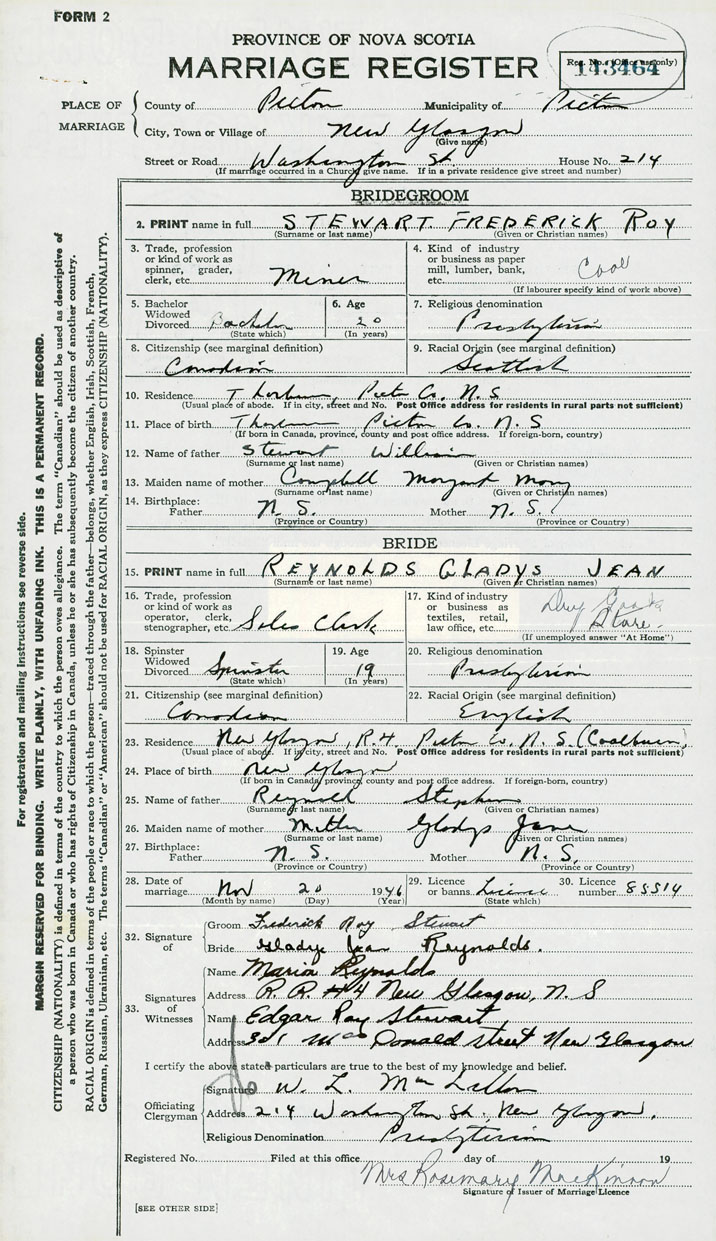 FORM 2
PROVINCE OF NOVA SCOTIA
MARRIAGE REGISTER
Reg. No. (Office use only)
143464
PLACE OF MARRIAGE
County of Pictou Municipality of Pictou
City, Town or Village of New Glasgow
(Give name)
Street or Road Washington St. House No. 214
(If marriage occurred in a Church give name. If in a private residence give street and number)
BRIDEGROOM
2. PRINT name in full STEWART FREDERICK ROY
(Surname or last name) (Given or Christian names)
3. Trade, profession or kind of work as spinner, grader, clerk, etc. Miner
4. Kind of industry or business as paper mill, lumber, bank, etc. Coal
(If labourer specify kind of work above)
5. Bachelor Widowed Divorced Bachelor
(State which)
6. Age 20
(In years)
7. Religious denomination
Presbyterian
8. Citizenship (see marginal definition)
Canadian
9. Racial Origin (see marginal definition)
Scottish
10. Residence Thorburn, Pictou Co. N.S
(Usual place of abode. If in city, street and No. Post Office address for residents in rural parts not sufficient)
11. Place of birth Thorburn Pictou Co. N.S
(If born in Canada, province, county and post office address. If foreign-born, country)
12. Name of father Stewart William
(Surname or last name) (Given or Christian names)
13. Maiden name of mother Campbell Margaret Mary
(Surname or last name) (Given or Christian names)
14. Birthplace: Father N.S. Mother N.S.
(Province or Country) (Province or Country)
BRIDE
15. PRINT name in full REYNOLDS GLADYS JEAN
(Surname or last name) (Given or Christian names)
16. Trade, profession or kind of work as operator, clerk, stenographer, etc. Sales Clerk
17. Kind of industry or business as textiles, retail, law office, etc. Dry Goods Store.
(If unemployed answer "At Home")
18. Spinster Widowed Divorced Spinster
(State which)
19. Age 19
(In years)
20. Religious denomination
Presbyterian
21. Citizenship (see marginal definition)
Canadian
22. Racial Origin (see marginal definition)
English
23. Residence New Glasgow, R.4. Pictou Co. N.S. (Coalburn)
(Usual place of abode. If in city, street and No. Post Office address for residents in rural parts not sufficient)
24. Place of birth New Glasgow
(If born in Canada, province, county and post office address. If foreign-born, country)
25. Name of father Reynolds Stephen
(Surname or last name) (Given or Christian names)
26. Maiden name of mother Gladys Jane
(Surname or last name) (Given or Christian names)
27. Birthplace: Father N.S. Mother N.S.
(Province or Country) (Province or Country)
28. Date of marriage Nov 20 1946
(Month by name) (Day) (Year)
29. Licence or banns Licence
(State which)
30. Licence number 85514
32. Signature of
Groom Frederick Roy Stewart
Bride Gladys Jean Reynolds.
33. Signatures of Witnesses
Name Marion Reynolds
Address R.R. #4 New Glasgow, N.S
Name Edgar Ray Stewart
Address 301 MacDonald street New Glasgow
I certify the above stated particulars are true to the best of my knowledge and belief.
Officiating Clergyman
Signature W. L. MacLellan
Address 214 Washington St. New Glasgow.
Religious Denomination Presbyterian
Registered No. Filed at this office day of 19
Mrs Rosemary MacKinnon
Signature of Issuer of Marriage Licence
[SEE OTHER SIDE]
For registration and mailing instructions see reverse side.
MARGIN RESERVED FOR BINDING. WRITE PLAINLY, WITH UNFADING INK. THIS IS A PERMANENT RECORD.
CITIZENSHIP (NATIONALITY) is defined in terms of the country to which the person owes allegiance. The term "Canadian" should be used as descriptive of
a person who was born in Canada or who has rights of Citizenship in Canada, unless he or she has subsequently become the citizen of another country.
RACIAL ORIGIN is defined in terms of the people or race to which the person—traced through the father—belongs, whether English, Irish, Scottish, French,
German, Russian, Ukrainian, etc. The terms "Canadian" or "American" should not be used for RACIAL ORIGIN, as they express CITIZENSHIP (NATIONALITY).